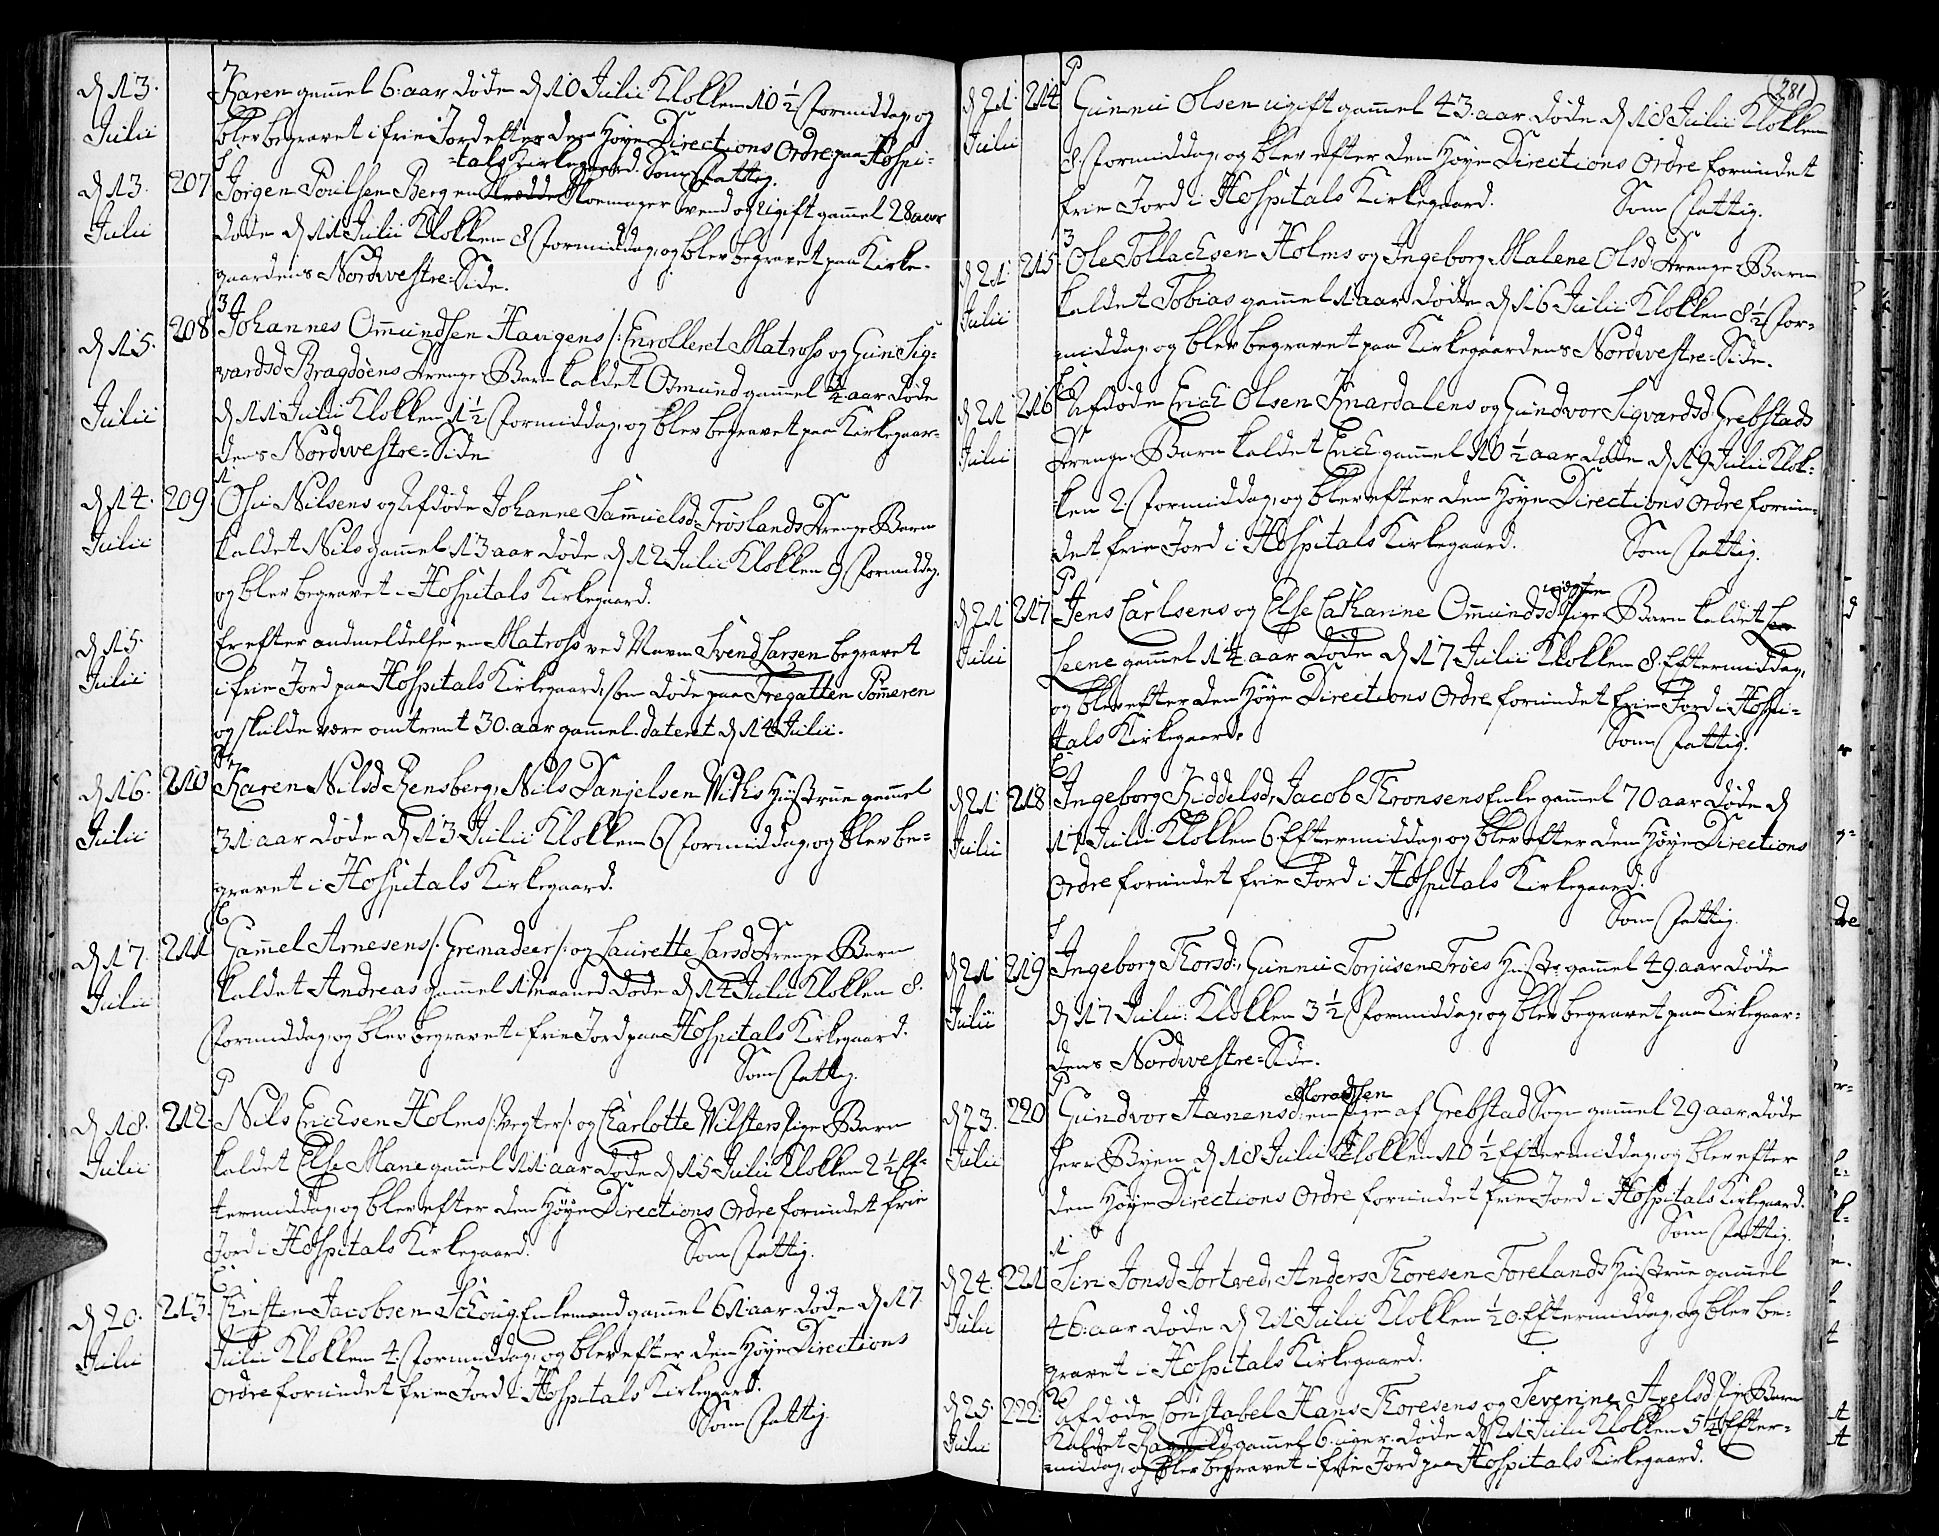 d 13. Julii
Karen gam̄el 6: aar døde d 10 Julii Klokken 10 ½ Formiddag, og
blev begravet i frie Jord efter den Høye Directions Ordre paa Hospi-
tals Kirkegaard. Som Fattig.
d 13. Julii 207
Jørgen Poulsen Berg en Skoemager Svend og Ugift gam̄el 28 aar
døde d 11 Julii Klokken 8 Formiddag, og blev begravet paa Kirke-
gaardens Nordvestre-Side.
d 15. Julii 208
3
Johannes Om̄undsen Haugens /: Enrolleret Matross og Guri Sig-
vardsd Bragdøens Drenge Barn kaldet Osmund gam̄el ¾ aar døde
d 11 Julii Klokken 1 ½ Formiddag, og blev begravet paa Kirkegaar-
dens Nordvestre-Side
d 14. Julii 209
1
Osii Nilsens og Afdøde Johanne Sam̄uelsd Frøslands Drenge Barn
kaldet Nils gam̄el 13 aar døde d 12 Julii Klokken 9 Formiddag,
og blev begravet i Hospitals Kirkegaard.
d 15. Julii
Er efter andmeldelse en Matross ved Navn Svend Larsen begravet
i frie Jord paa Hospitals Kirkegaard, som døde paa Fregatten Pom̄eren
og skulde være omtrent 30. aar gam̄el dateret d 14 Julii.
d 16. Julii 210
Karen Nilsd Rensberg, Nils Danielsen Wiigs Hustrue gam̄el
31 aar døde d 13 Julii Klokken 6 Formiddag, og blev be-
gravet i Hospitals Kirkegaard.
d 17. Julii 211
Gam̄el Arnesens /: Grenadeer /: og Laurette Larsd Drenge Barn
kaldet Andreas gam̄el 1 Maaned døde d 14 Julii Klokken 8.
Formiddag, og blev begravet i frie Jord paa Hospitals Kirkegaard.
Som Fattig.
d 18. Julii 212.
P
Nils Erichsen Holms /: Vegter /: og Charlotte Wilsters Pige Barn
kaldet Else Marie gam̄el 11 aar døde d 15 Julii Klokken 2 ½ Ef-
termiddag, og blev efter den Høye Directions Ordre forundet frie
Jord i Hospitals Kirkegaard. Som Fattig.
d 20. Julii 213.
Christen Jacobsen Schoug Enkemand gam̄el 61 aar døde d 17
Julii Klokken 4. Formiddag, og blev efter den Høye Directions
Ordre forundet frie Jord i Hospitals Kirkegaard.
Som Fattig.
281
d 21. Julii 214
P
Gunnii Olsen ugift gam̄el 43. aar døde d 18 Julii Klokken
8. Formiddag, og blev efter den Høye Directions Ordre forundet
frie Jord i Hospitals Kirkegaard. Som Fattig.
d 21 Julii 215
3
Ole Tollachsen Holms og Ingeborg Malene Olsd: Drenge Barn
kaldet Tobias gam̄el 1 aar døde d 16 Julii Klokken 8 ½ For-
middag, og blev begravet paa Kirkegaardens Nordvestre-Side.
d 21 Julii 216
Afdøde Erich Olsen Knardalens og Gundvor Sigvardsd: Grebstads
Drenge Barn kaldet Erich gam̄el 10 ½ aar døde d 19 Julii Klok-
ken 2. Formiddag, og blev efter den Høye Directions Ordre forun-
det frie Jord i Hospitals Kirkegaard. Som Fattig.
d 21 Julii 217
P
Jens Carlsens og Else Catharine Om̄undsd Pige Barn kaldet
Leene gam̄el 14 aar døde d 17 Julii Klokken 8. Eftermiddag,
og blev efter den Høye Directions Ordre forundet frie Jord i Hospi-
tals Kirkegaard. Som Fattig.
d 21 Julii 218
Ingeborg Kiddelsd, Jacob Thronsens Enke gam̄el 70 aar døde d
17 Julii Klokken 6 Eftermiddag, og blev efter den Høye Directions
Ordre forundet frie Jord i Hospitals Kirkegaard.
Som Fattig.
d 21 Julii 219
Ingeborg Thorsd: Gunnii Torjusen Trøes Hustr: gam̄el 49. aar døde
d 17 Julii: Klokken 3 ½ Formiddag, og blev begravet paa Kirkegaar-
dens Nordvestre-Side.
d 23. Julii 220
P
Gundvor Aanensd: en Pige af Grebstad Sogn gam̄el 29. aar, døde
her i Byen d 18 Julii Klokken 10 ½ Eftermiddag, og blev efter
den Høye Directions Ordre forundet frie Jord i Hospitals Kirkegaard.
Som Fattig.
d 24. Julii 221
1
Siri Jonsd Jortved, Anders Thoresen Forelands Hustrue gam̄el
46. aar døde d 21 Julii Klokken ½ 0 Eftermiddag, og blev be-
gravet i Hospitals Kirkegaard.
d 25. Julii 222.
Afdøde Constabel Hans Thoresens og Severine Axelsd Pige Barn
Kaldet Ragnild gam̄el 6. uger. døde d 21 Julii Klokken 5 ½ Efter-
middag, og blev begravet i frie Jord paa Hospitals Kirkegaard.